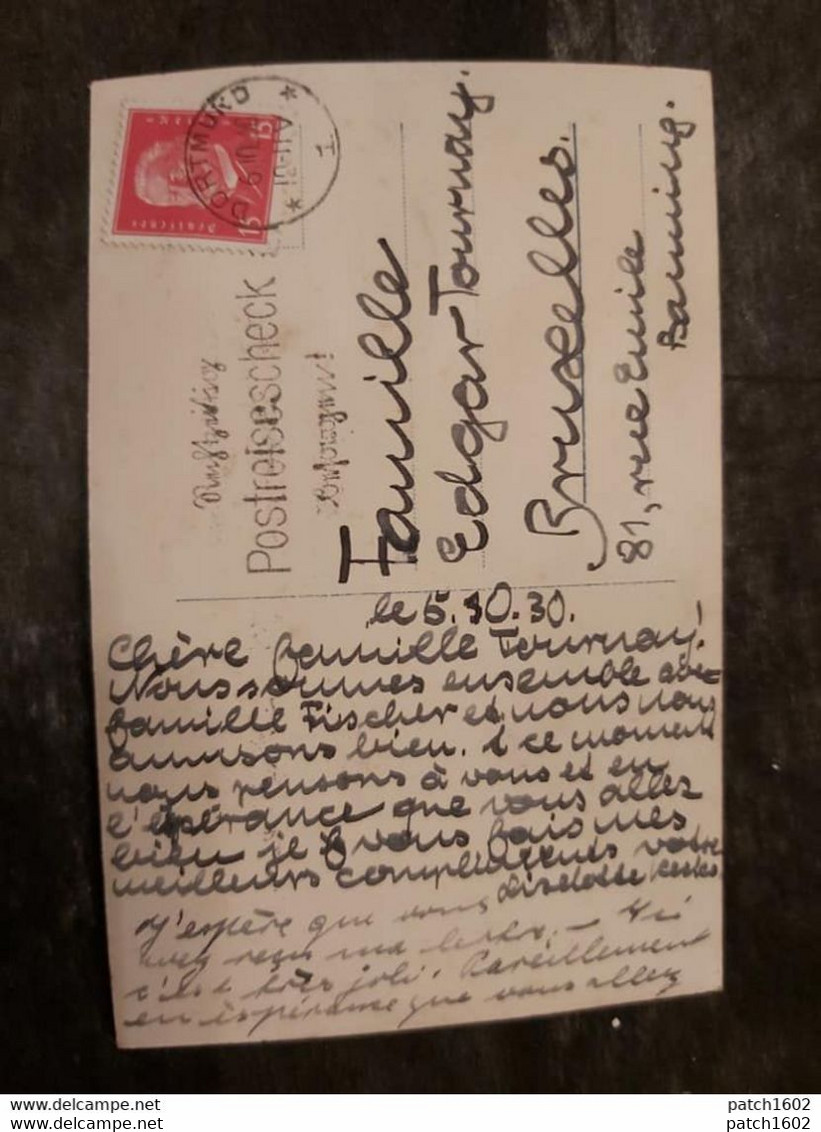 DORTMUND
* 1 *
15
15
Deutsches
Rechtzeitig
Postreisescheck
besorgen!
Famille
Edgar Tournay.
Bruxelles.
81, rue Emile
Banning.
le 5.10.30.
Chère famille Tournay!
Nous sommes ensemble avec
famille Fischer et nous nous
amusons bien. À ce moment
nous pensons à vous et en
l'espérance que vous allez
bien je vous fais mes
meilleurs compliments votre
Liselotte
J'espère que vous
avez reçu ma lettre. — Ici
c'est très joli. Pareillement
en espérance que vous allez
https://www.delcampe.net
patch1602
https://www.delcampe.net
patch1602